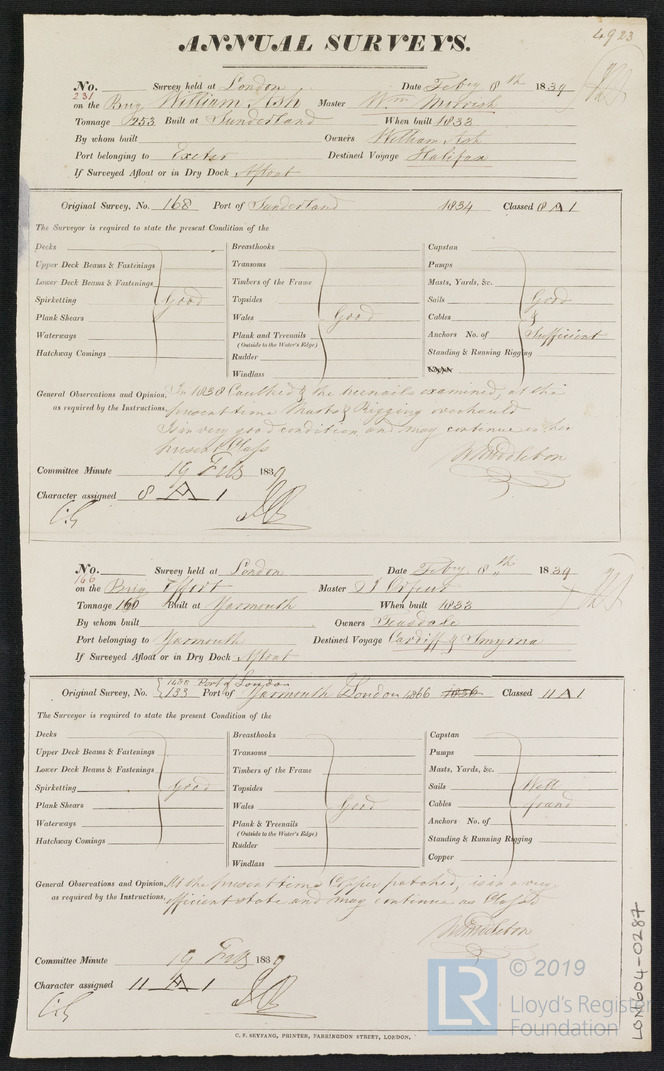 4923
ANNUAL SURVEYS.
No. 231 Survey held at London Date Feby 8th 1839
on the Brig William Ash Master Wm
Tonnage 253 Built at Sunderland When built 1833
By whom built Owners William Ash
Port belonging to Exeter Destined Voyage Halifax
If Surveyed Afloat or in Dry Dock Afloat
Original Survey, No. 168 Port of Sunderland 1834 Classed 8 A 1
The Surveyor is required to state the present Condition of the
Decks Breasthooks Capstan
Upper Deck Beams & Fastenings Transoms Pumps
Lower Deck Beams & Fastenings Timbers of the Frame Masts, Yards, &c.
Spirketting Good Topsides Sails Good
Plank Shears Wales Good Cables &
Waterways Plank and Treenails Anchors No. of Sufficient
(Outside to the Water's Edge)
Hatchway Comings Rudder Standing & Running Rigging
Windlass
General Observations and Opinion, In 1838 Caulked & the treenails examined, at the
as required by the Instructions, present time Masts & Rigging overhauld
Is in very good condition and may continue in her
present Class
W Middleton
Committee Minute 19 Feb 1839
Character assigned 8 A 1
No. 166 Survey held at London Date Feby 8th 1839
on the Brig Effort Master
Tonnage 160 Built at Yarmouth When built 1833
By whom built Owners Teasdale
Port belonging to Yarmouth Destined Voyage Cardiff & Smyrna
If Surveyed Afloat or in Dry Dock Afloat
Port of London
Original Survey, No. 133 Port of Yarmouth & London 1836 Classed 11 A 1
The Surveyor is required to state the present Condition of the
Decks Breasthooks Capstan
Upper Deck Beams & Fastenings Transoms Pumps
Lower Deck Beams & Fastenings Timbers of the Frame Masts, Yards, &c.
Spirketting Good Topsides Sails Well
Plank Shears Wales Good Cables found
Waterways Plank & Treenails Anchors No. of
(Outside to the Water's Edge)
Hatchway Comings Rudder Standing & Running Rigging
Windlass Copper
General Observations and Opinion, At the present time Copper patched, is in a very
as required by the Instructions, efficient state and may continue as Classd
W Middleton
Committee Minute 19 Feb 1839
Character assigned 11 A 1
C. F. SEYFANG, PRINTER, FARRINGDON STREET, LONDON.
LON604-0287
LR © 2019
Lloyd's Register
Foundation